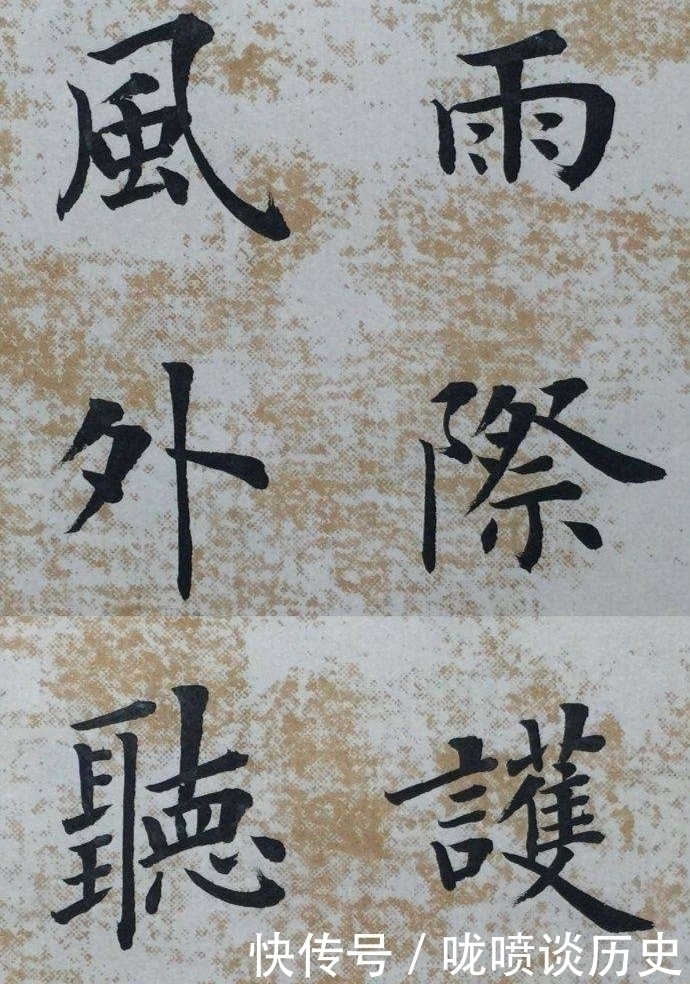 雨際護
風外聽
快传号 / 咙喷谈历史